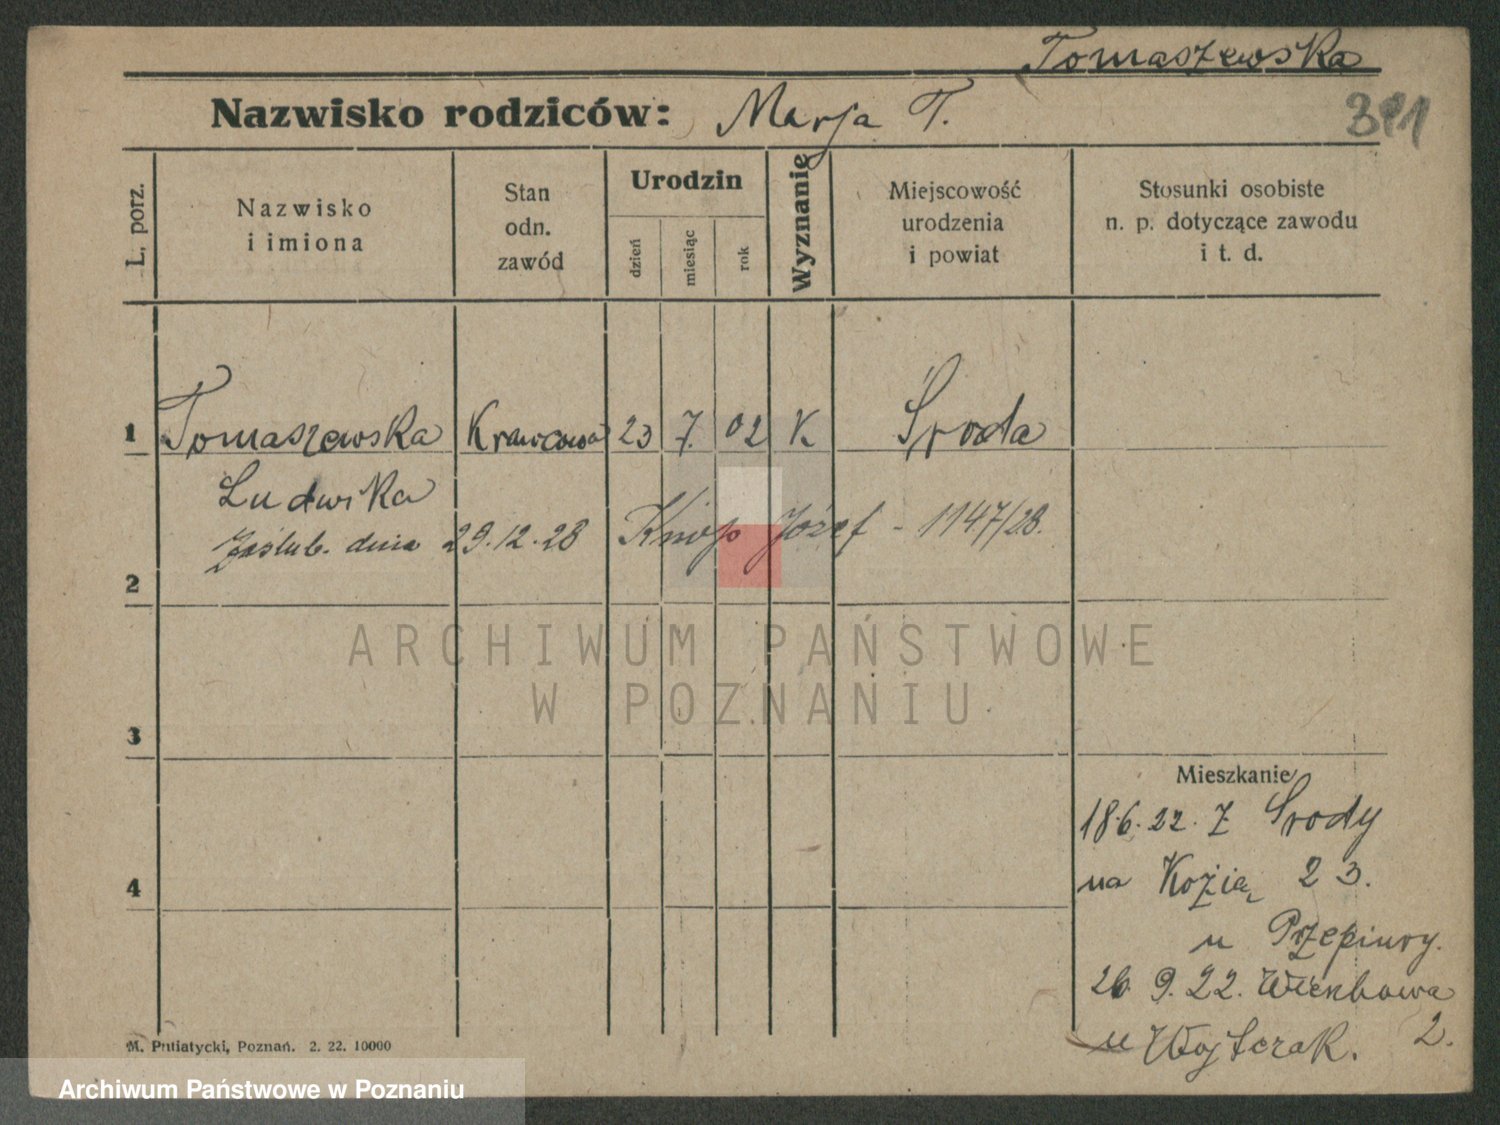 Tomaszewska
Nazwisko rodziców: Marja T.
L. porz.
Nazwisko
i imiona
Stan
odn.
zawód
Urodzin
dzień
miesiąc
rok
Wyznanie
Miejscowość
urodzenia
i powiat
Stosunki osobiste
n. p. dotyczące zawodu
i t. d.
1 Tomaszewska Krawcowa 23 7. 02 K Środa
Ludwika
Zaślub. dnia 29.12.28 Knop Józef - 1147/28.
2
ARCHIWUM PAŃSTWOWE
W POZNANIU
3
Mieszkanie
18.6.22. Z Środy
na Kozią 23.
4
u
26 9.22. 2.
u Wojtczak.
M. Putiatycki, Poznań. 2. 22. 10000
Archiwum Państwowe w Poznaniu